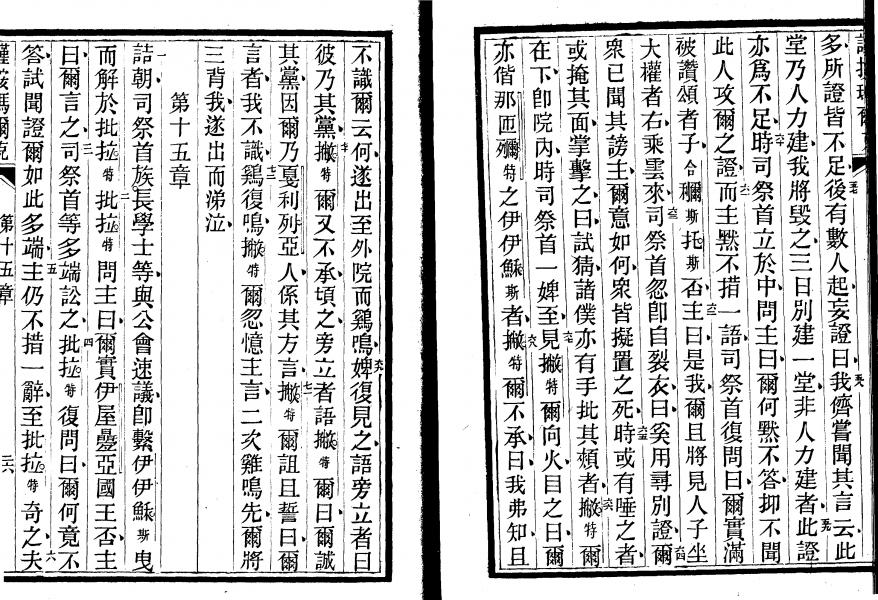 多所證皆不足後有數人起妄證曰我儕嘗聞其言云此
堂乃人力建我將毀之三日別建一堂非人力建者此證
亦爲不足時司祭首立於中問主曰爾何默不答抑不聞
此人攻爾之證而主默不措一語司祭首復問曰爾實滿
被讚頌者子合穪斯托斯否主曰是我爾且將見人子坐
大權者右乘雲來司祭首忽卽自裂衣曰奚用尋別證爾
衆已聞其謗主爾意如何衆皆擬置之死時或有唾之者
或掩其面掌擊之曰試猜諸僕亦有手批其頰者撇特爾
在下卽院內時司祭首一婢至見撇特爾向火目之曰爾
亦偕那匝穪特之伊伊穌斯者撇特爾不承曰我弗知且
不識爾云何遂出至外院而鷄鳴婢復見之語旁立者曰
彼乃其黨撇特爾又不承頃之旁立者語撇特爾曰爾誠
其黨因爾乃戛利列亞人係其方言撇特爾詛且誓曰爾
言者我不識鷄復鳴撇特爾忽憶主言二次雞鳴先爾將
三背我遂出而涕泣
第十五章
一詰朝司祭首族長學士等與公會速議卽繫伊伊穌斯曳
而解於批拉特二批拉特問主曰爾實伊屋疊亞國王否主
曰爾言之三司祭首等多端訟之四批拉特復問曰爾何竟不
答試聞證爾如此多端五主仍不措一辭至批拉特奇之六夫
第十五章 二六